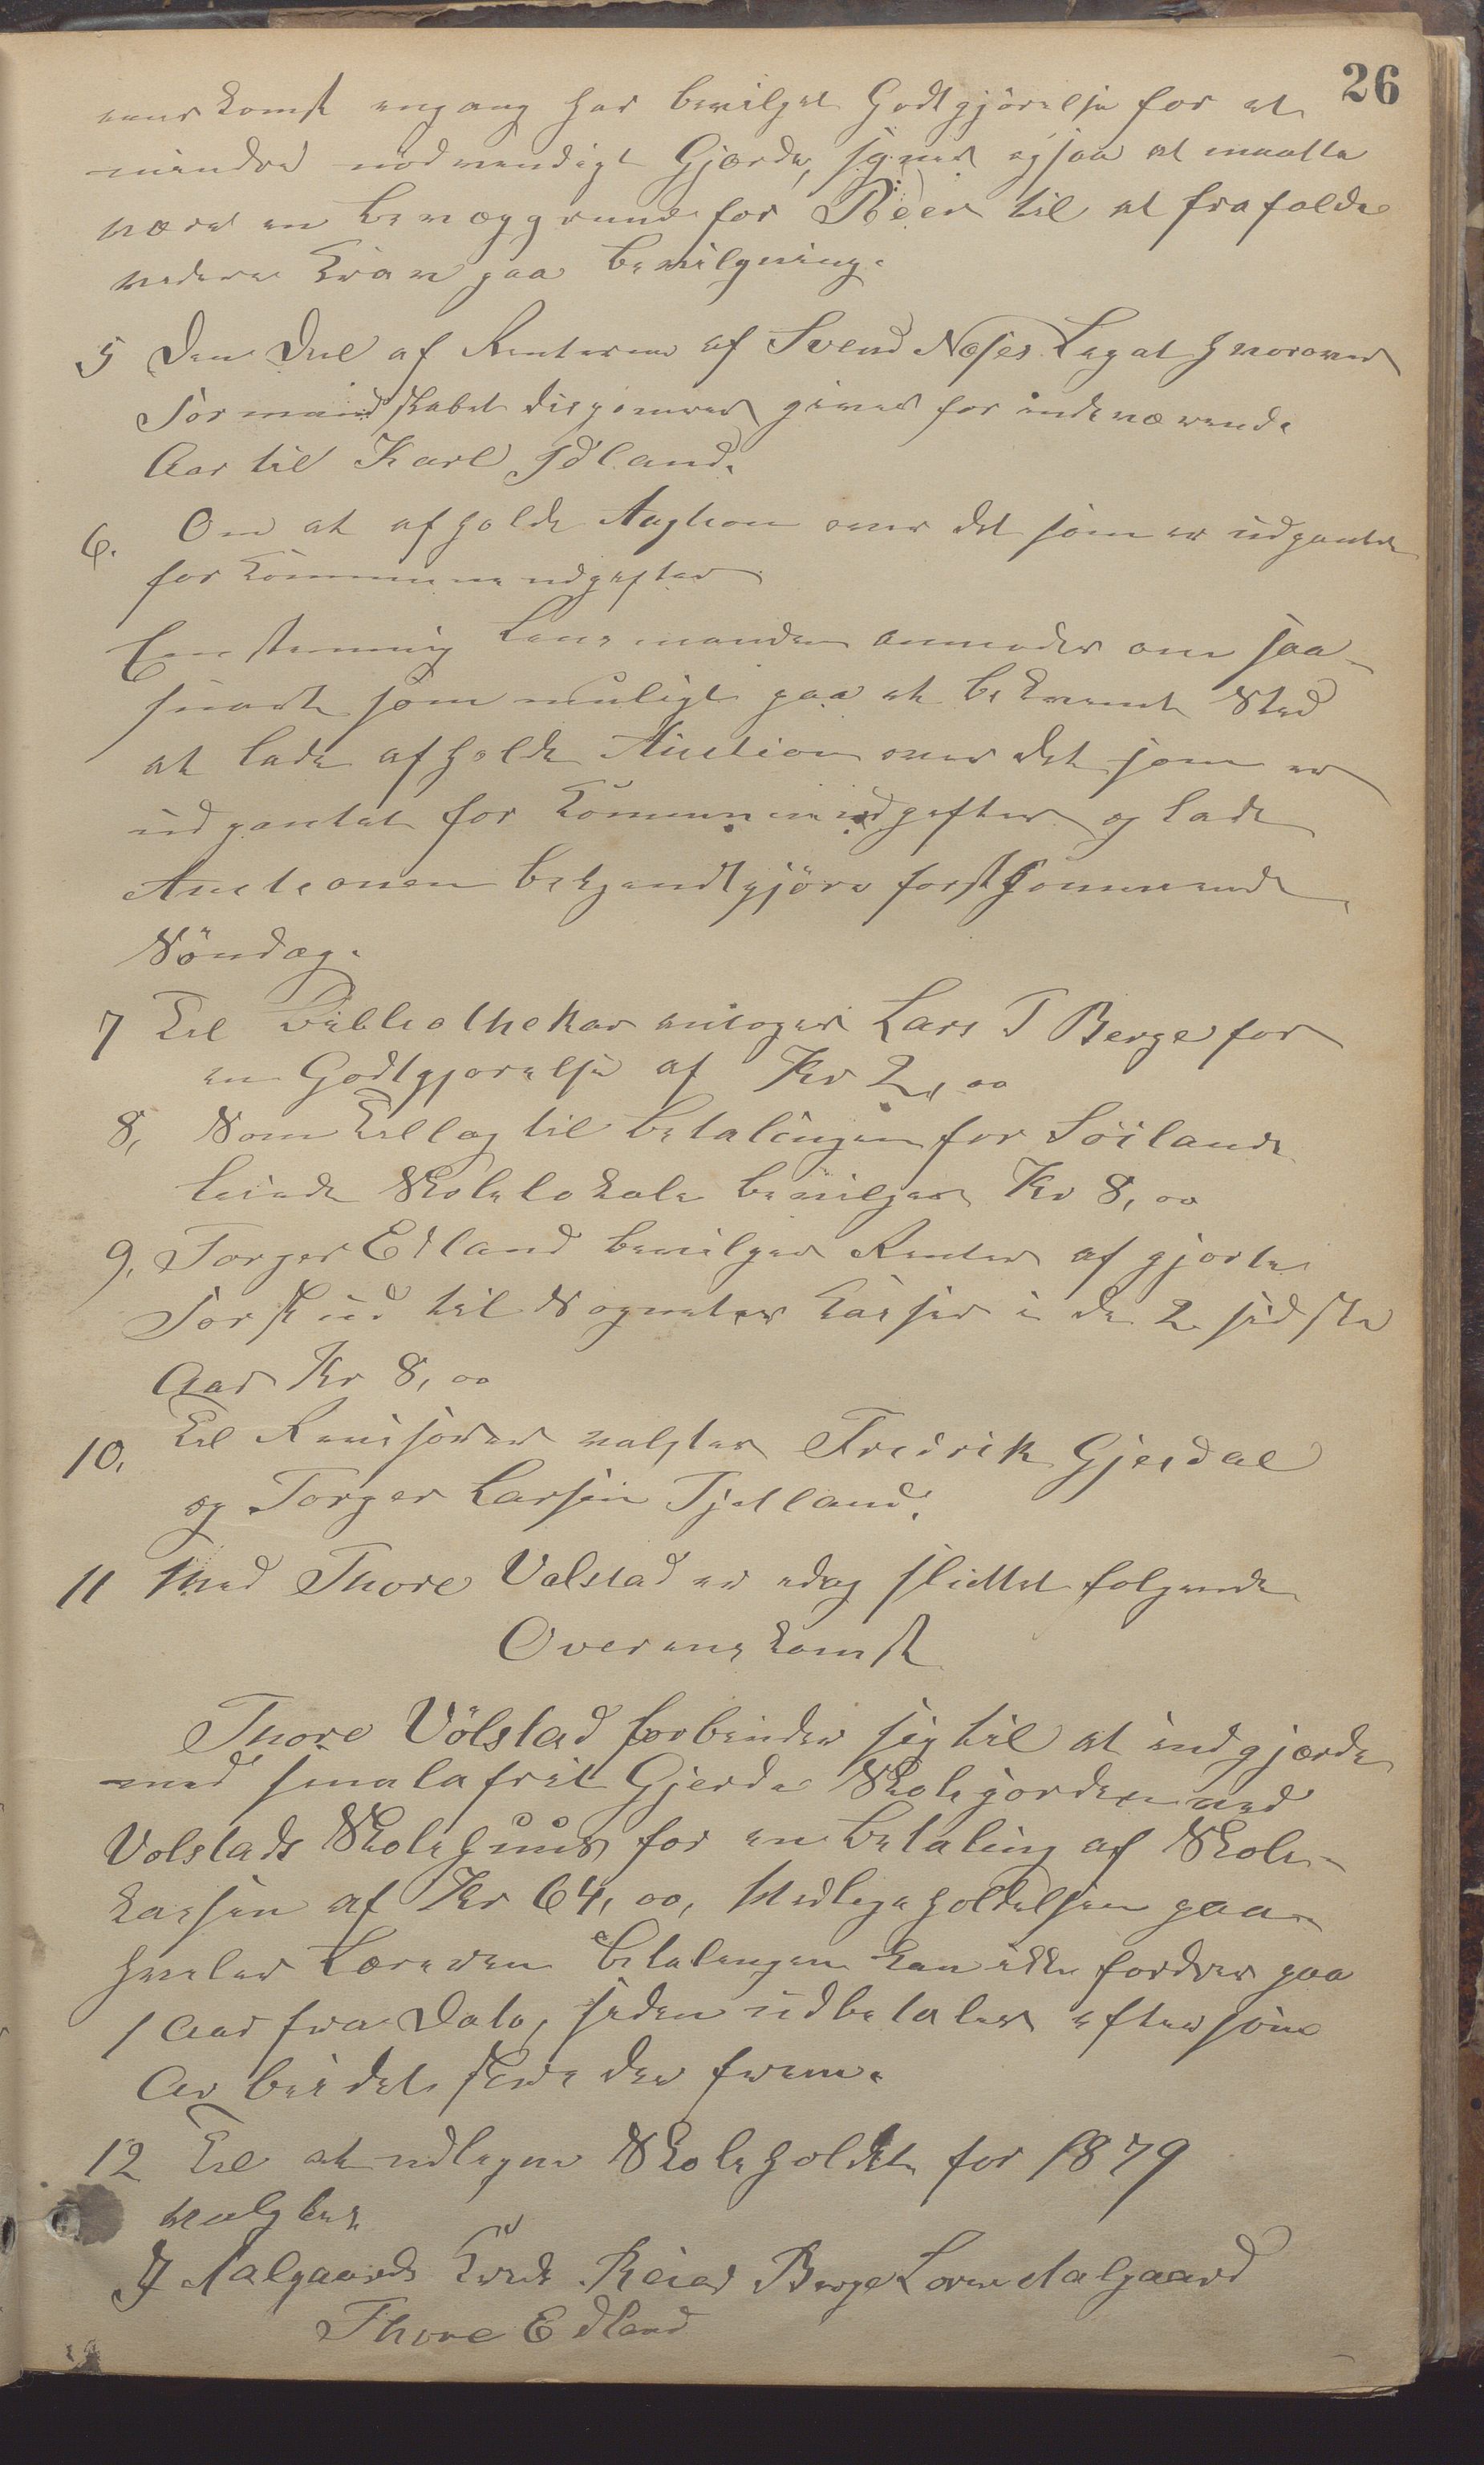 26
enskomst engang har bevilget Godtgjörelse for et
mindre nödvendigt Gjærde, synes ogsaa at maatte
være en Bevæggrund for Beer til at frafalde
videre Krav paa Bevilgning.
5 Den Deel af Renterne af Svend Næses Legat hvorover
Formandskabet disponerer gives for indeværende
Aar til Karl Idland.
6. Om at afholde Augtion over det som er udpantet
for Kommuneudgifter
Eenstemmig Lensmanden anmodes om saa-
snart som muligt paa et bekvemt Sted
at lade afholde Auction over det som er
udpantet for Kommuneudgifter og lade
Auctionen bekjendtgjöre förstkommende
Söndag.
7 Til Bibliothekar antoges Lars T Berge for
en Godtgjorelse af Kr 2,00
8, Som Tillæg til Betalingen for Söilands
leiede Skolelokale bevilges Kr 8,00
9, Torger Edland bevilges Renter af gjorte
Forskud til Sognets Kasser i de 2 sidste
Aar Kr 8,00
10. Til Revisorer valgtes Fredrik Gjesdal
og Torger Larsen Tjelland.
11 Med Thore Valstad er idag sluttet folgende
Overenskomst
Thore Völstad forbinder sig til at indgjærde
med smalafrit Gjerde Skolejorden ved
Volstads Skolehuus for en Betaling af Skole-
kassen af Kr 64,00, Vedligeholdelsen paa-
hviler Læreren Betalingen kan ikke fordres paa
1 Aar fra Dato, siden udbetales eftersom
Arbeidet skrider frem.
12 Til at udligne Skoleholdet for 1879
valgtes
J Aalgaard Reier Berge Loren Aalgaard
Thore Edland